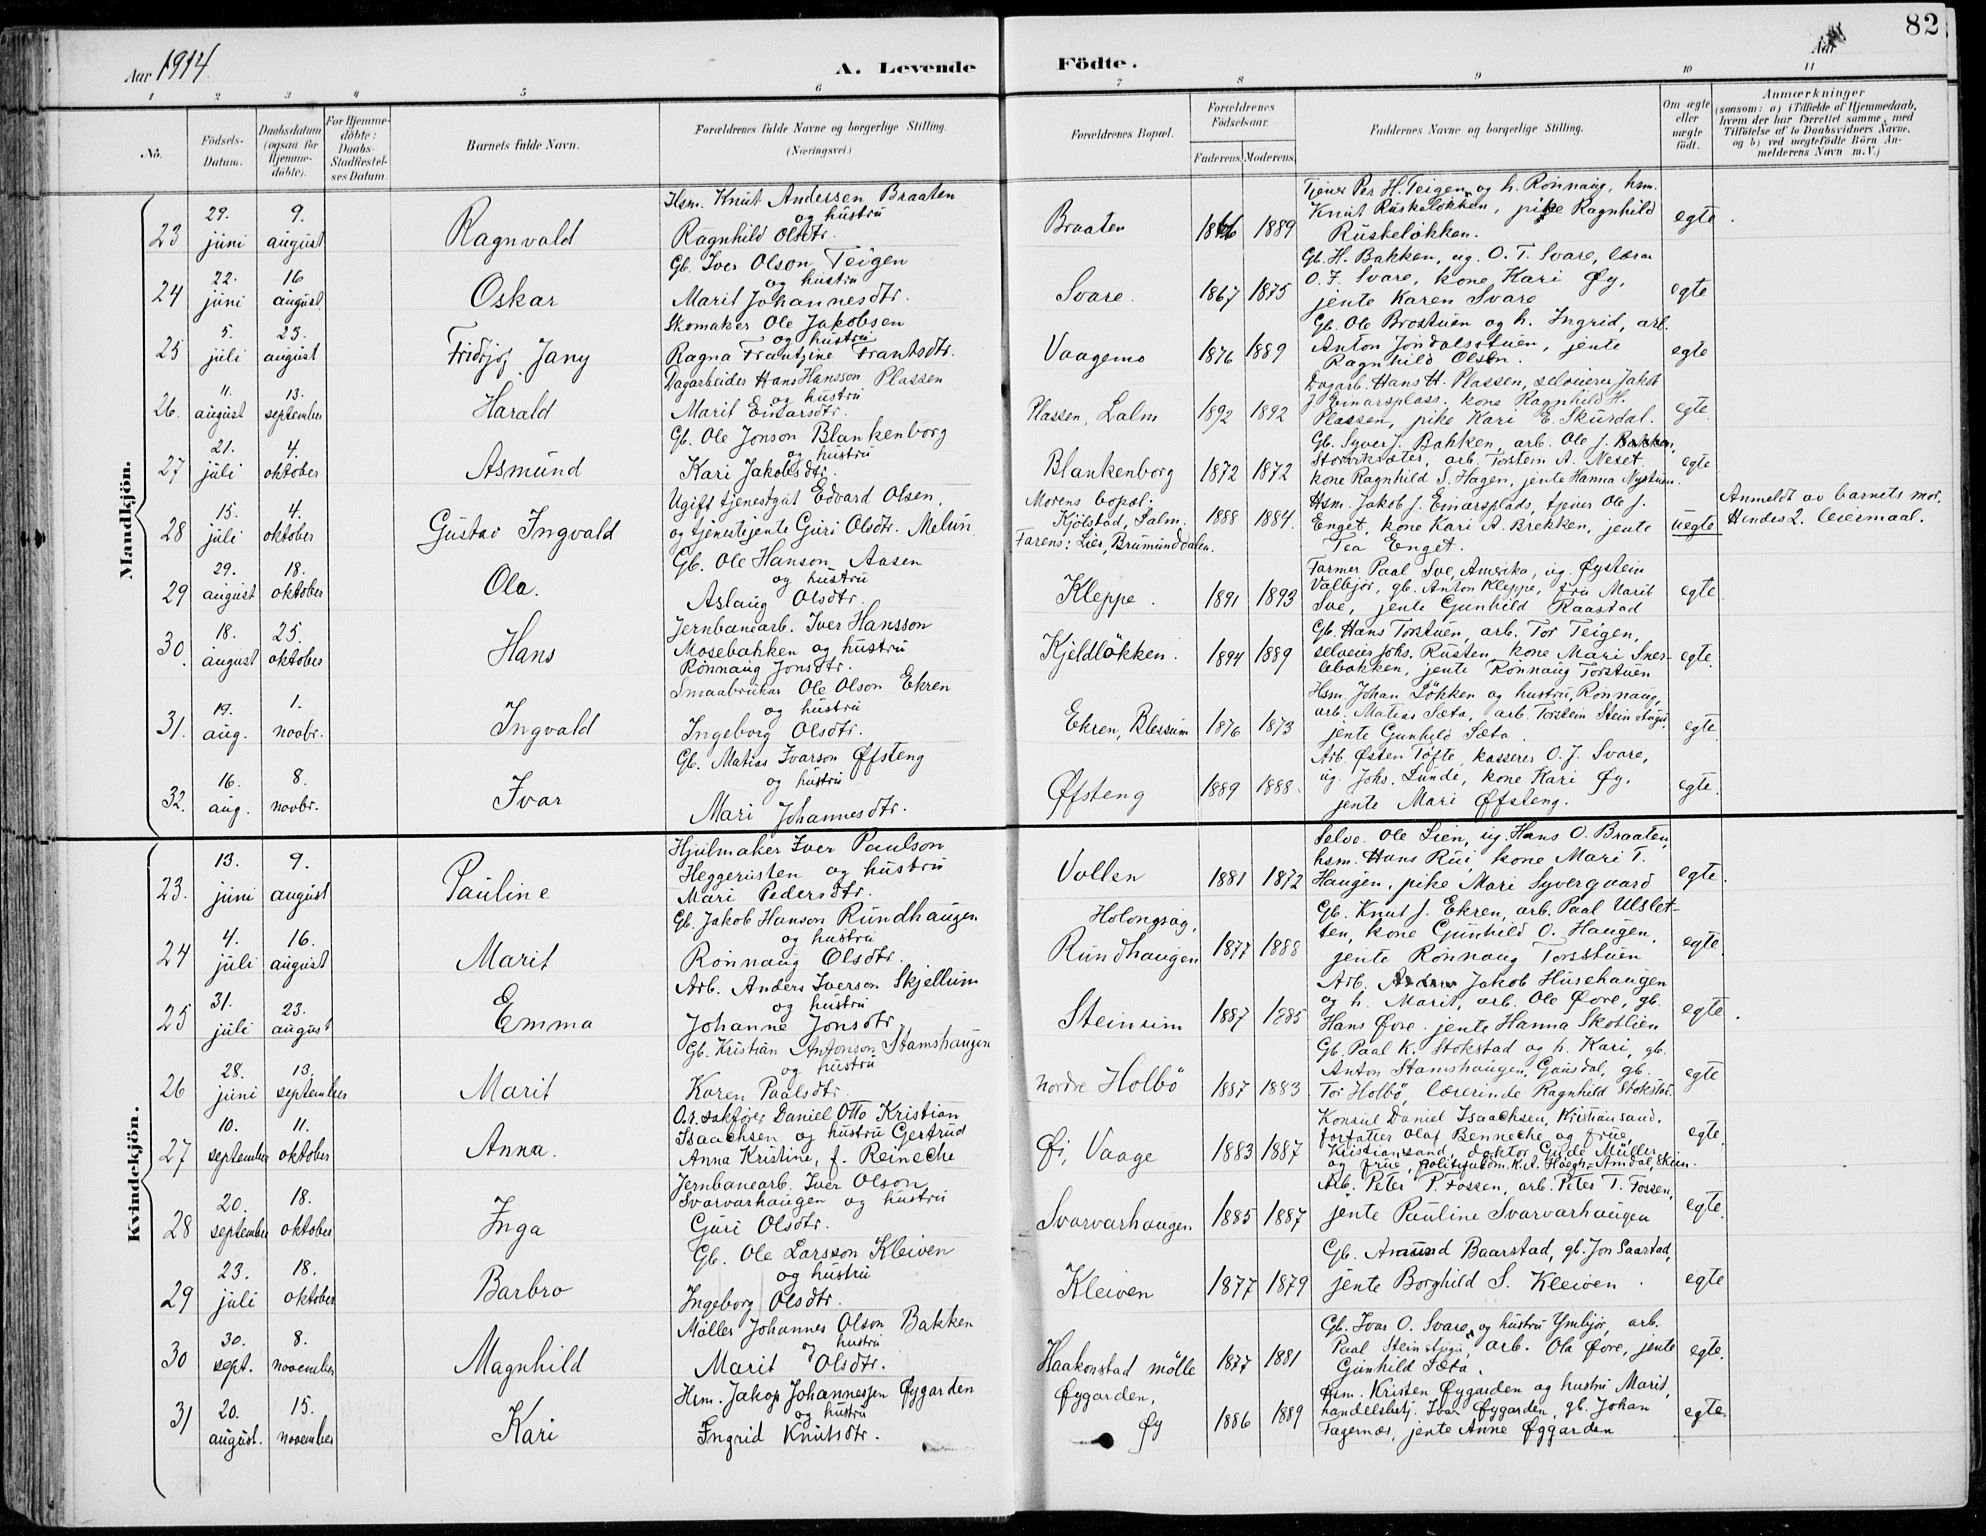 82
Aar 1914
A. Levende Födte.
Aar
1 2 3 4 5 6 7 8 9 10 11
No.
Födsels-Datum.
Daabsdatum (ogsaa for Hjemmedöbte).
For Hjemmedöbte: Daabs-Stadfæstelses Datum.
Barnets fulde Navn.
Forældrenes fulde Navne og borgerlige Stilling. (Næringsvei.)
Forældrenes Bopæl.
Forældrenes Födselsaar.
Faderens. Moderens.
Faddernes Navne og borgerlige Stilling.
Om ægte eller uægte födt.
Anmærkninger (saasom: a) i Tilfælde af Hjemmedaab, hvem der har forrettet samme, med Tilföielse af to Daabsvidners Navne, og b) ved uægtefödte Börn Anmelderens Navn m. V.)
Mandkjön.
23 29. juni 9. august Ragnvald
Hsm. Knut Andersen Braaten
og hustru
Ragnhild Olsdtr.
Braaten 1889
Tjener Per H. Teigen og h. Rönnaug, hsm.
Knut Ruskelökken, pike Ragnhild
Ruskelökken.
egte
24 22. juni 16 august Oskar
Gb. Iver Olson Teigen
og hustru
Marit Johannesdtr.
Svare. 1867 1875
Gb. H. Bakken, ug. O. T. Svare, lærar
O. F. Svare, kone Kari Øy,
jente Karen Svare
egte
25 5. juli 23. august Fridtjof Jany
Skomaker Ole Jakobsen
og hustru
Ragna Frantzine Frantsdtr.
Vaagemo 1876 1889
Gb. Ole Brostuen og h. Ingrid, arb.
Anton Jondalsstuen, jente
Ragnhild Olsen.
egte
26. 11. august 13. september Harald
Dagarbeider Hans Hansson Plassen
og hustru
Marit Einarsdtr.
Plassen, Lalm 1892 1892
Dagarb. Hans H. Plassen, selveier Jakob
J. Einarsplass. kone Ragnhild H.
Plassen, pike Kari E. Skurdal.
egte.
27 21. juli 4. oktober Asmund
Gb. Ole Jonson Blankenborg
og hustru
Kari Jakobsdtr.
Blankenborg 1872 1872
Gb. Syver J. Bakken, arb. Ole J.
Storviksæter, arb. Torstein A. Neset,
kone Ragnhild S. Hagen, jente Hanna Nystuen.
egte
28 15. juli 4. oktober Gustav Ingvald
Ugift tjenestgut Edvard Olsen,
og tjenestejente Guri Olsdtr. Melum
Morens bopæl:
Kjölstad, Lalm.
Farens: Lier, Brumunddalen.
1888 1884.
Hsm. Jakob J. Einarsplads, tjener Ole J.
Enget, kone Kari A. Brekken, jente
Tea Enget.
uegte
Anmeldt av barnets mor.
Hendes 2. leiermaal.
29 29. august 18. oktober Ola.
Gb. Ole Hanson Aasen
og hustru
Aslaug Olsdtr.
Kleppe. 1891 1893
Farmer Paal Sve, Amerika, ug. Øystein
Valbjør, gb. Anton Kleppe, fru Marit
Sve, jente Gunhild Raastad
egte
30. 18. august 25. oktober Hans
Jernbanearb. Iver Hansson
Mosebakken og hustru
Rönnaug Jonsdtr.
Kjeldlökken. 1894 1889
Gb. Hans Torstuen, arb. Tor Teigen,
selveier Johs. Rusten, kone Mari Sner-
lebakken, jente Rönnaug Torstuen
egte.
31. 19. aug. 1. novbr. Ingvald
Smaabruker Ole Olson Ekren
og hustru
Ingeborg Olsdtr.
Ekren, Blessum 1876 1873
Hsm. Johan Lökken og hustru, Rönnaug,
arb. Matias Sæta, arb. Torstein Steinstugu,
jente Gunhild Sæta.
egte.
32. 16. aug. 8. novbr. Ivar
Gb. Matias Ivarson Øfsteng
og hustru
Mari Johannesdtr.
Øfsteng 1889 1888.
Arb. Østen Tofte, kasserer O. J. Svare,
ug. Johs. Lunde, kone Kari Øy,
jente Mari Øfsteng.
egte.
Kvindekjön.
23. 13. juni 9. august Pauline
Hjulmaker Iver Paulson
Heggerusten og hustru
Mari Pedersdtr.
Vollen 1881 1872
Selve. Ole Lien, ug. Hans O. Braaten,
hsm. Hans Rui, kone Mari T.
Haugen, pike Mari Syvergaard
egte.
24 4. juli 16. august Marit
Gb. Jakob Hanson Rundhaugen
og hustru
Rönnaug Olsdtr.
Holongsög,
Rundhaugen 1877 1888
Gb. Knut J. Ekren, arb. Paal Ulslet-
ten, kone Gunhild O. Haugen,
jente Rönnaug Torsstuen
egte.
25 31. juli 23. august Emma
Arb. Anders Iverson Skjellum
og hustru
Johanne Jonsdtr.
Steinsum 1887 1885
Arb. Jakob Husehaugen
og h. Marit, arb. Ole Øvre, gb.
Hans Øvre. jente Hanna Skotlien
egte.
26 28. juni 13. september Marit
Gb. Kristian Antonson Stamshaugen
og hustru
Karen Paalsdtr.
nordre Holbö 1887 1883
Gb. Paal K. Stokstad og h. Kari, gb.
Anton Stamshaugen, Gausdal, gb.
Tor Holbö, lærerinde Ragnhild Stokstad.
egte
27 10. september 11. oktober Anna.
O.r. sakfører Daniel Otto Kristian
Isaachsen og hustru Gertrud
Anna Kristine, f. Reineche
Øi, Vaage 1883 1887
Konsul Daniel Isaachsen, Kristiansand,
forfatter Olaf Benneche og frue,
Kristiansand, doktor Gude Müller
og frue, politifuldm. K. A. Høegh-Amdal, Skien.
egte.
28 20. september 18. oktober Inga
Jernbanearb. Iver Olson
Svarvarhaugen og hustru
Guri Olsdtr.
Svarvarhaugen 1885 1887
Arb. Peter P. Fossen, arb. Peter T. Fossen,
jente Pauline Svarvarhaugen
egte.
29 23. juli 18. oktober Barbro
Gb. Ole Larsson Kleiven
og hustru
Ingeborg Olsdtr.
Kleiven 1877 1879
Gb. Amund Baarstad, gb. Jon Saarstad,
jente Borghild S. Kleiven.
egte
30 30. sept. 8. november Magnhild
Møller Johannes Olson Bakken
og hustru
Marit Olsdtr.
Haakonstad mölle 1877 1881
Gb. Ivar O. Svare og hustru Ymbjör, arb.
Paal Steinstugu, arb. Ola Øvre, jente
Gunhild Sæta.
egte.
31 20. august. 15. november Kari
Hsm. Jakop Johannessen Øygarden
og hustru
Ingrid Knutsdtr.
Øygarden,
Øy 1886 1889
Hsm. Kristen Øygarden og hustru Marit,
handelsbetj. Ivar Øygarden, gb. Johan
Fagernæs, jente Anne Øygarden
egte.